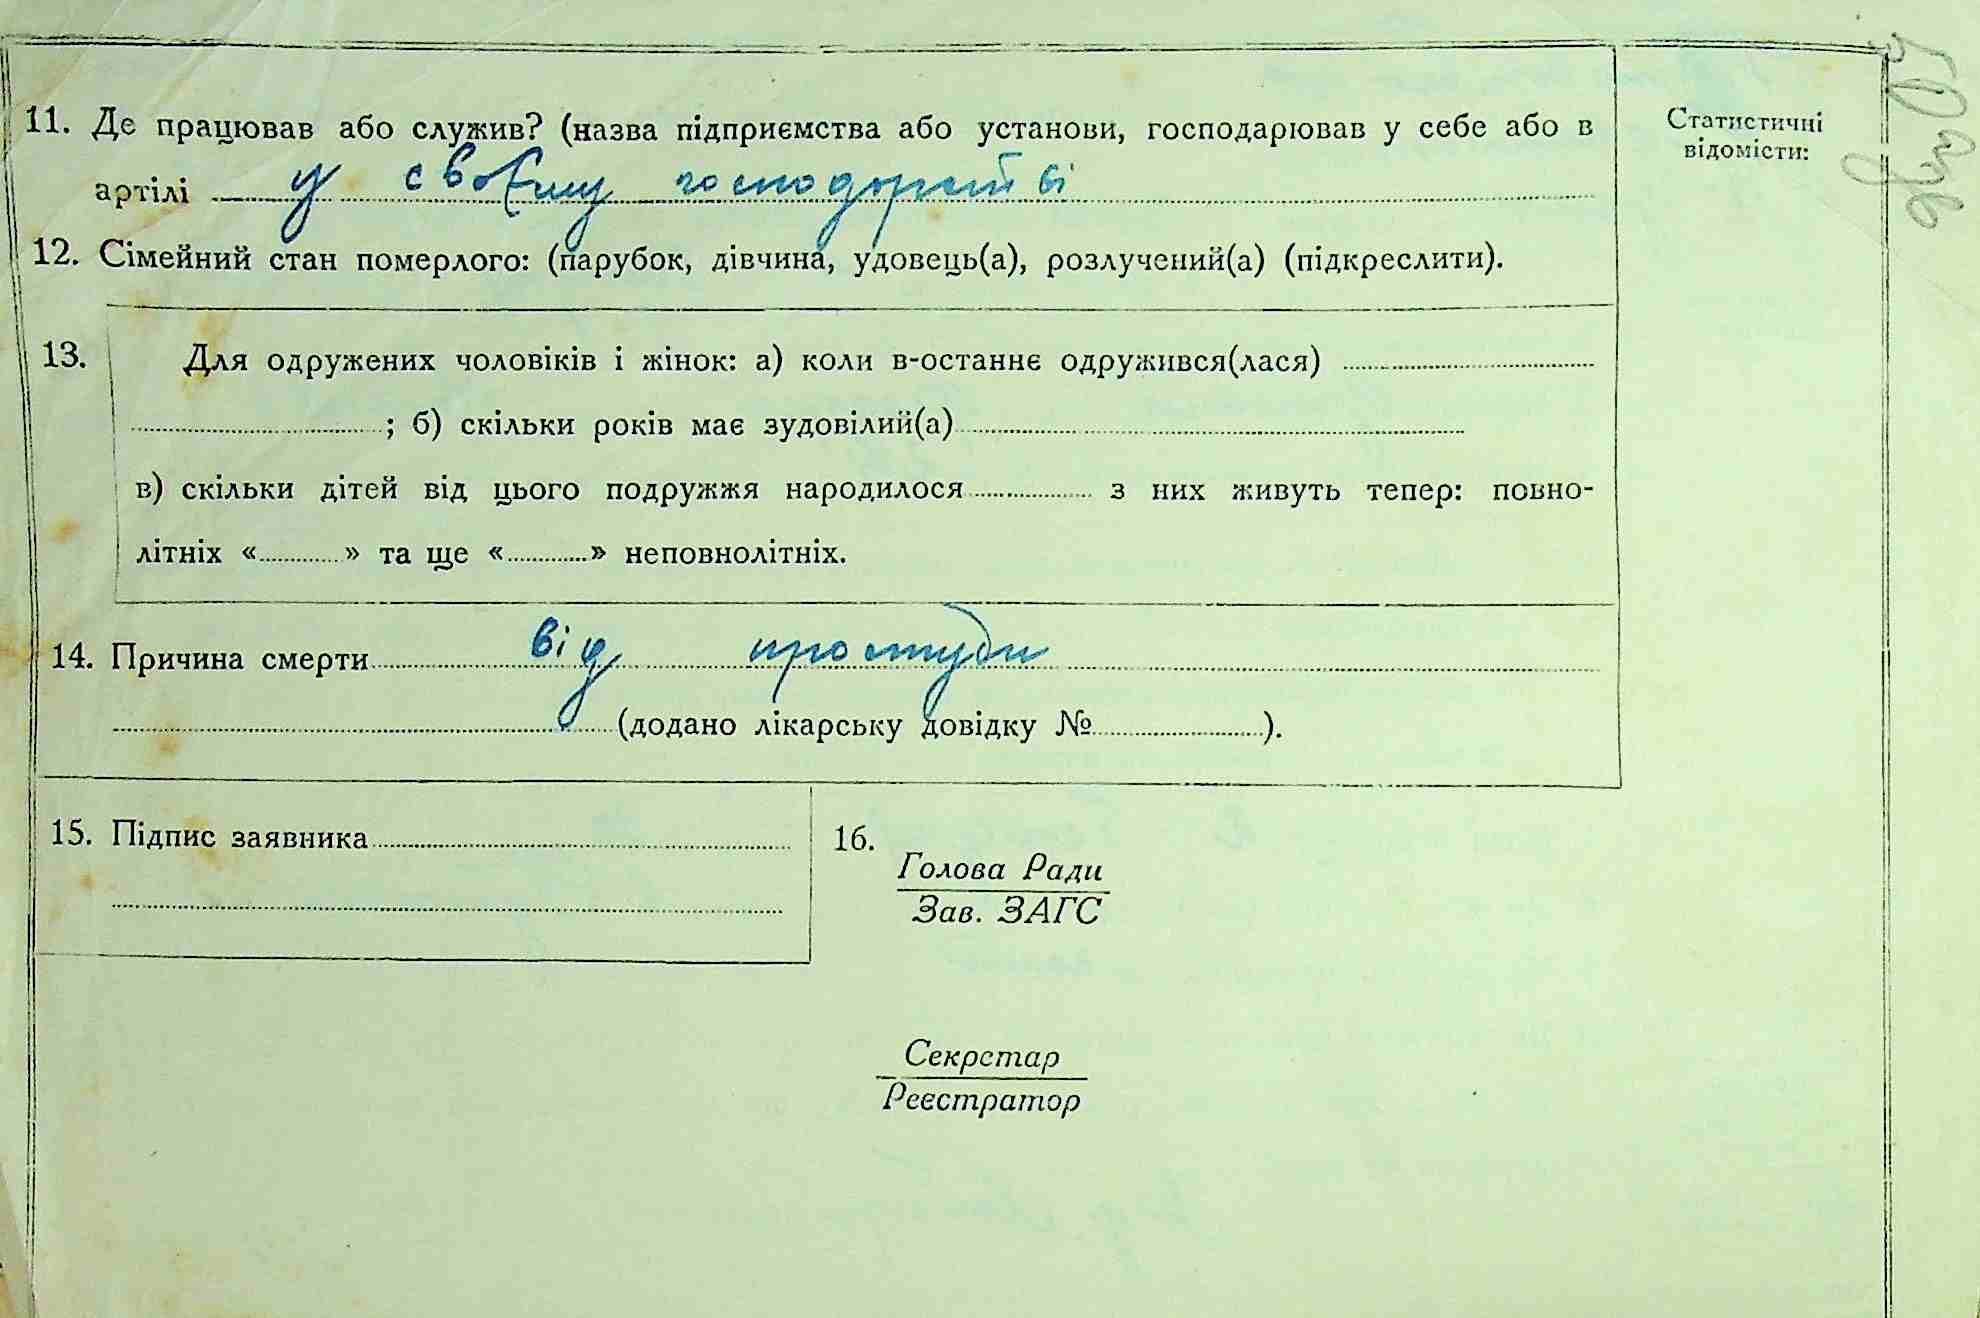 11. Де працював або служив? (назва підприємства або установи, господарював у себе або в
артілі у своєму господарстві
12. Сімейний стан померлого: (парубок, дівчина, удовець(а), розлучений(а) (підкреслити).
13. Для одружених чоловіків і жінок: а) коли в-останнє одружився(лася)
; б) скільки років має зудовілий(а)
в) скільки дітей від цього подружжя народилося з них живуть тепер: повно-
літніх « » та ще « » неповнолітніх.
14. Причина смерти від простуди
(додано лікарську довідку № ).
15. Підпис заявника
16.
Голова Ради
Зав. ЗАГС
Секретар
Реєстратор
Статистичні
відомісти: